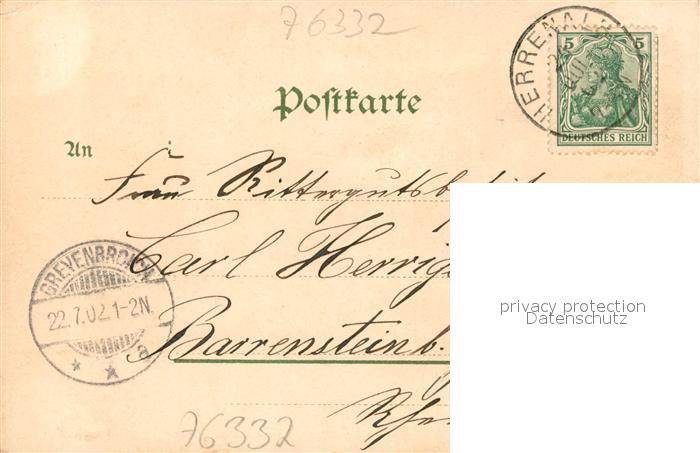 76332
HERRENALB
5 5
DEUTSCHES REICH
Postkarte
An
Frau Rittergutsb
Carl Herrig
Barrenstein b.
Rhe
GREVENBROICH
22.7.02.1-2N.
* * a
76332
privacy protection
Datenschutz